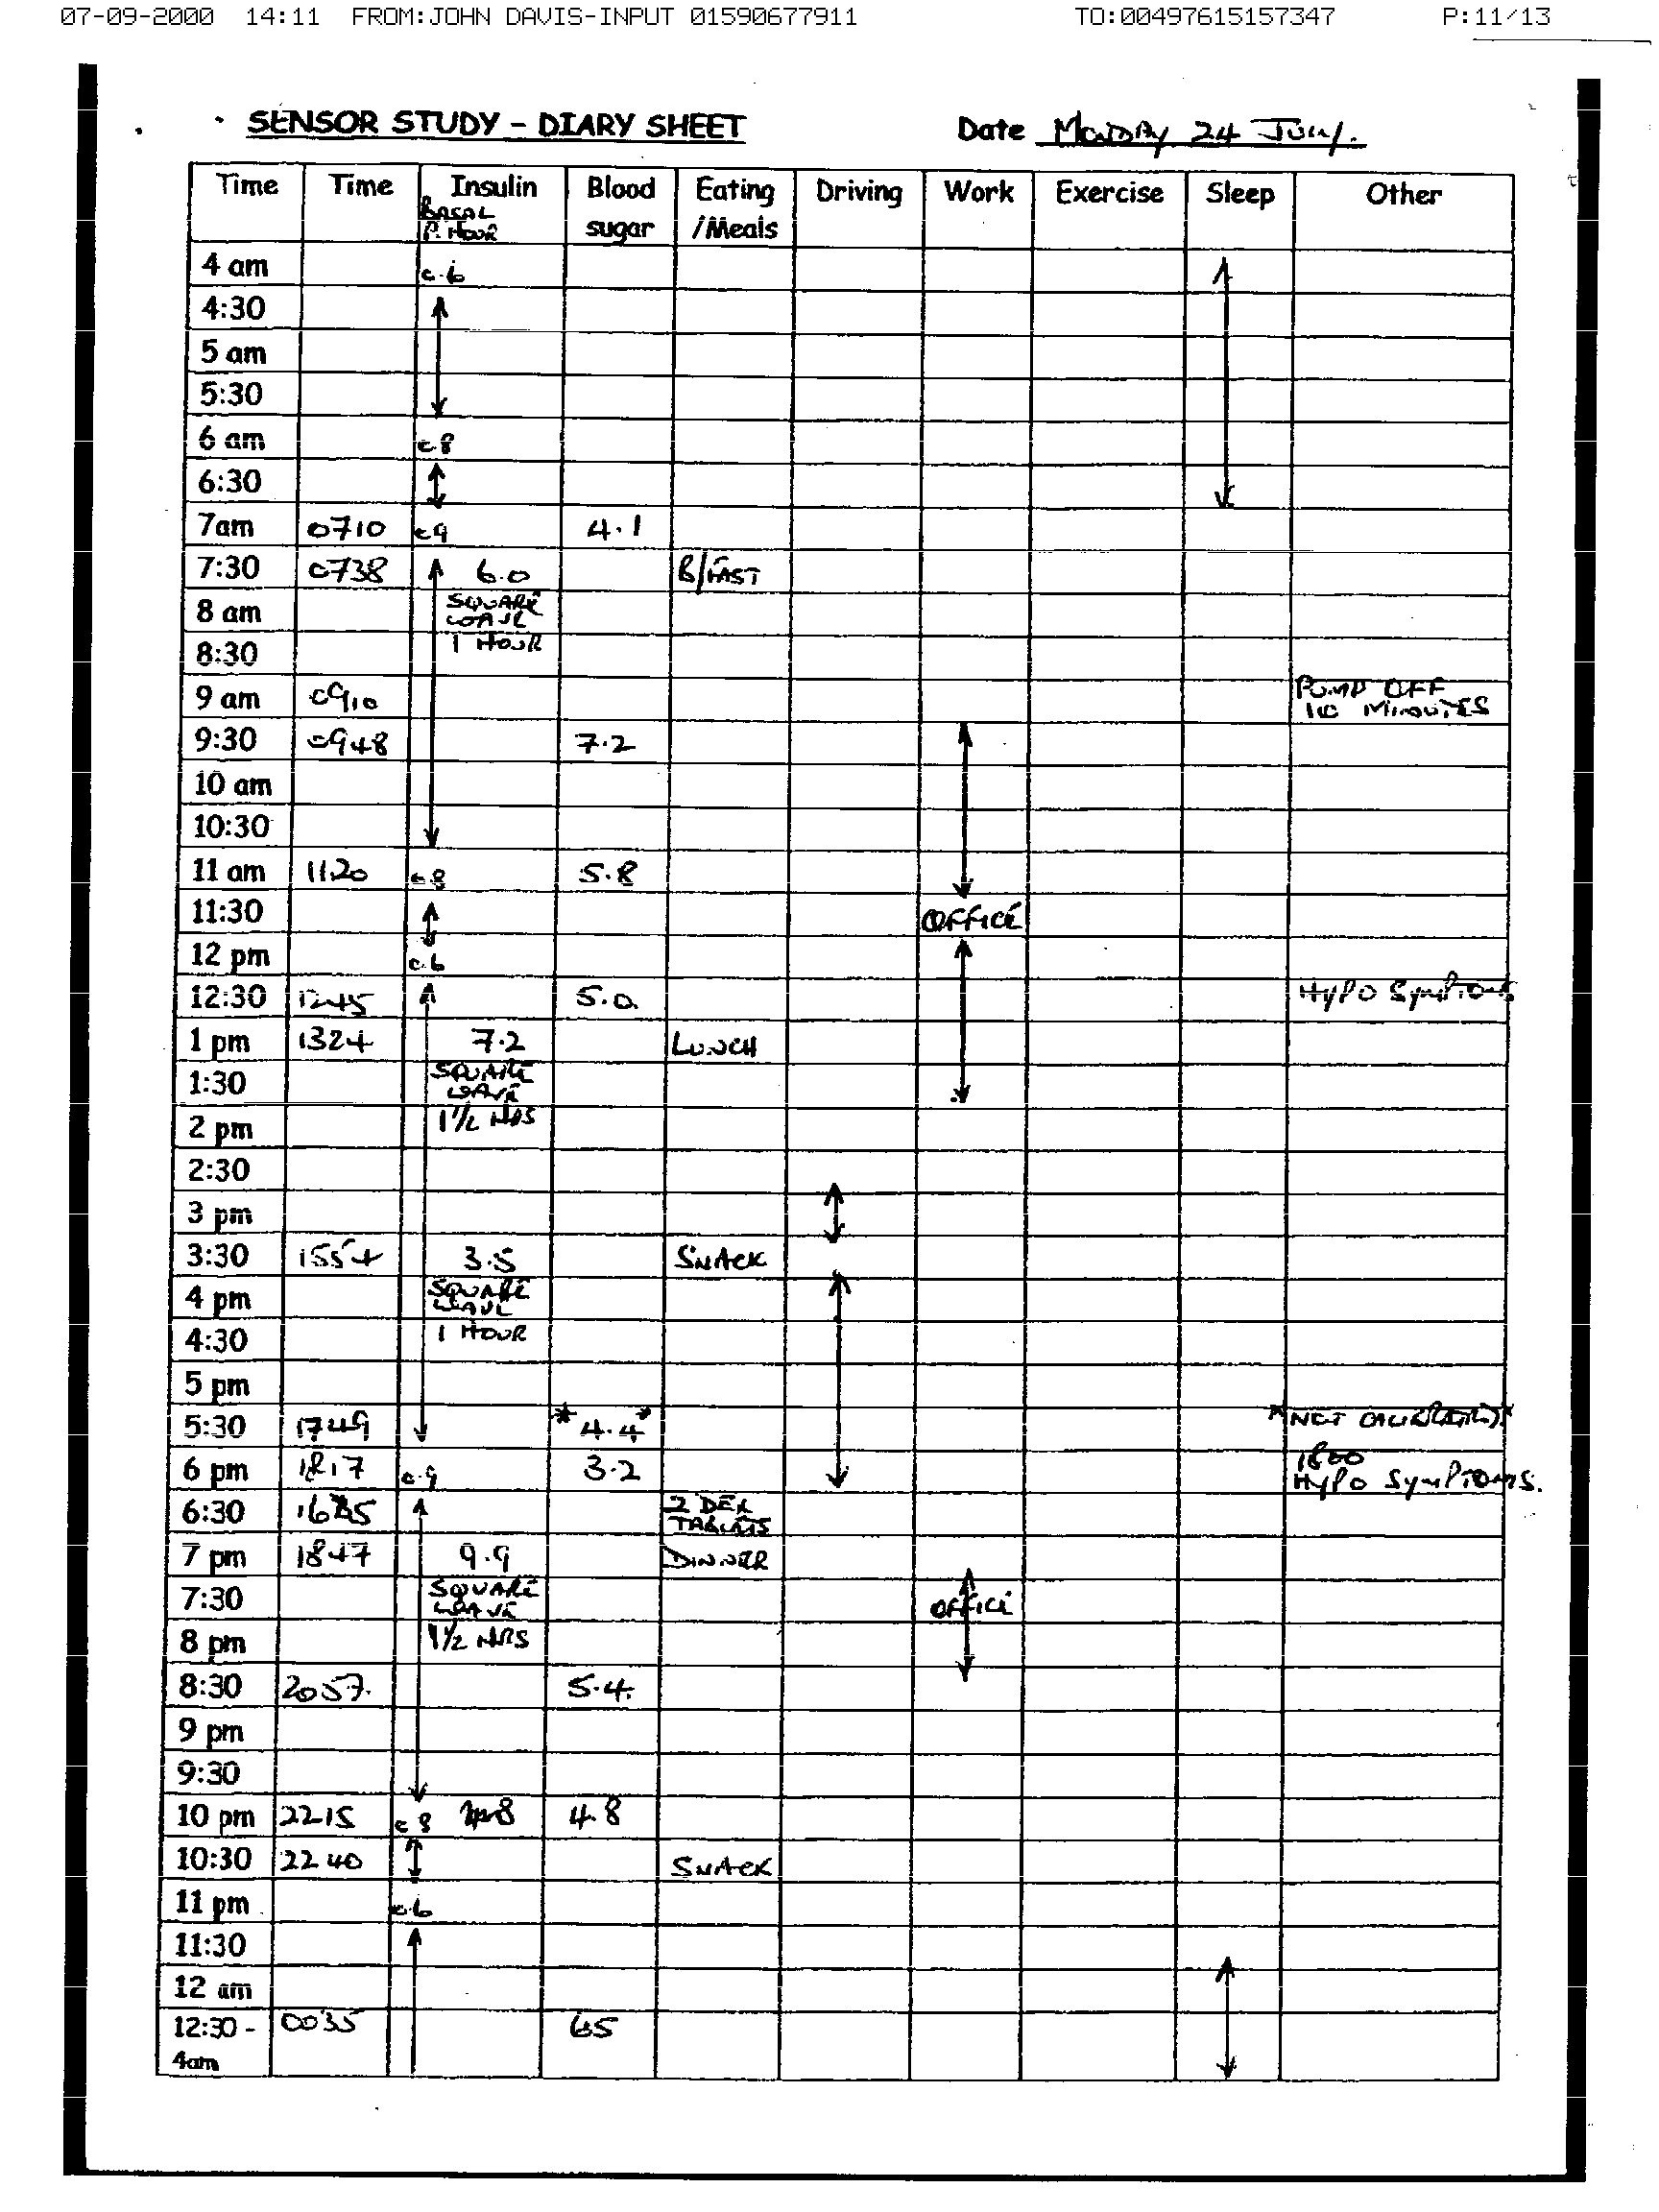 07-09-2000 14:11 FROM:JOHN DAVIS-INPUT 01590677911 TO:00497615157347 P:11/13
SENSOR STUDY - DIARY SHEET Date MONDAY 24 JULY.
Time Time Insulin Blood Eating Driving Work Exercise Sleep Other
BASAL
P. HOUR sugar /Meals
4 am 0.6
4:30
5 am
5:30
6 am 0.8
6:30
7am 0710 0.9 4.1
7:30 0738 6.0 B/FAST
8 am SQUARE
WAVE
8:30 1 HOUR
9 am 0910 PUMP OFF
MINUTES
9:30 0948 7.2
10 am
10:30
11 am 1120 0.8 5.8
11:30 OFFICE
12 pm 0.6
12:30 1245 5.0 HYPO SYMPTOMS
1 pm 1324 7.2 LUNCH
1:30 SQUARE
WAVE
2 pm 1 1/2 HRS
2:30
3 pm
3:30 1554 3.5 SNACK
4 pm SQUARE
WAVE
4:30 1 HOUR
5 pm
5:30 1749 *4.4* *NOT CALIBRATED*
6 pm 1817 0.9 3.2 1800
HYPO SYMPTOMS.
6:30 2 DEX
TABLETS
7 pm 1847 9.9 DINNER
7:30 SQUARE OFFICE
WAVE
8 pm 1 1/2 HRS
8:30 2057. 5.4.
9 pm
9:30
10 pm 2215 0.8 4.8
10:30 2240 SNACK
11 pm 0.6
11:30
12 am
12:30 - 0035 6.5
4am